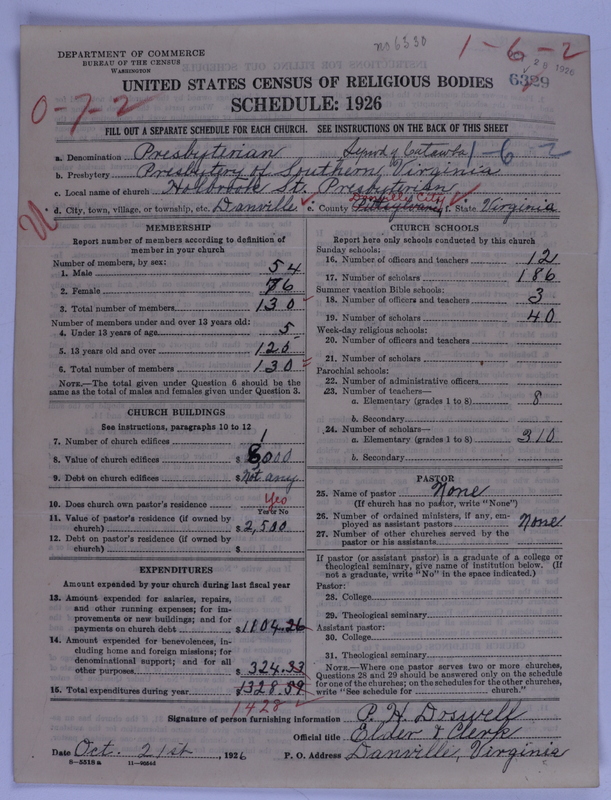 no 6330
1-6-2
DEPARTMENT OF COMMERCE
BUREAU OF THE CENSUS
WASHINGTON
28 1926
6329
UNITED STATES CENSUS OF RELIGIOUS BODIES
0-7-2
SCHEDULE: 1926
FILL OUT A SEPARATE SCHEDULE FOR EACH CHURCH. SEE INSTRUCTIONS ON THE BACK OF THIS SHEET
a. Denomination Presbyterian Synod of Catawba 1-6-2
b. Presbytery Presbytery of Southern Virginia
c. Local name of church Holbrook St. Presbyterian
Danville City
d. City, town, village, or township, etc. Danville e. County Pittsylvania f. State Virginia
MEMBERSHIP
Report number of members according to definition of
member in your church
Number of members, by sex:
1. Male 54
2. Female 76
3. Total number of members 130
Number of members under and over 13 years old:
4. Under 13 years of age 5
5. 13 years old and over 125
6. Total number of members 130
NOTE.—The total given under Question 6 should be
same as the total of males and females given under Question 3.
CHURCH BUILDINGS
See instructions, paragraphs 10 to 12
7. Number of church edifices 1
8. Value of church edifices $ 8000
9. Debt on church edifices $ Not any
10. Does church own pastor's residence Yes
Yes or No
11. Value of pastor's residence (if owned by
church) $ 2,500
12. Debt on pastor's residence (if owned by
church) $
EXPENDITURES
Amount expended by your church during last fiscal year
13. Amount expended for salaries, repairs,
and other running expenses; for im-
provements or new buildings; and for
payments on church debt $ 1104.26
14. Amount expended for benevolences, in-
cluding home and foreign missions; for
denominational support; and for all
other purposes $ 324.33
15. Total expenditures during year $ 1328.59
1428
CHURCH SCHOOLS
Report here only schools conducted by this church
Sunday schools:
16. Number of officers and teachers 12
17. Number of scholars 186
Summer vacation Bible schools:
18. Number of officers and teachers 3
19. Number of scholars 40
Week-day religious schools:
20. Number of officers and teachers
21. Number of scholars
Parochial schools:
22. Number of administrative officers
23. Number of teachers—
a. Elementary (grades 1 to 8) 8
b. Secondary
24. Number of scholars—
a. Elementary (grades 1 to 8) 310
b. Secondary
PASTOR
25. Name of pastor None
(If church has no pastor, write "None")
26. Number of ordained ministers, if any, em-
ployed as assistant pastors None
27. Number of other churches served by the
pastor or his assistants
If pastor (or assistant pastor) is a graduate of a college or
theological seminary, give name of institution below. (If
not a graduate, write "No" in the space indicated.)
Pastor:
28. College
29. Theological seminary
Assistant pastor:
30. College
31. Theological seminary
NOTE.—Where one pastor serves two or more churches,
Questions 28 and 29 should be answered only on the schedule
for one of the churches; on the schedules for the other churches,
write "See schedule for church."
Signature of person furnishing information P. H. Doswell
Official title Elder & Clerk
Date Oct. 21st, 1926 P. O. Address Danville, Virginia